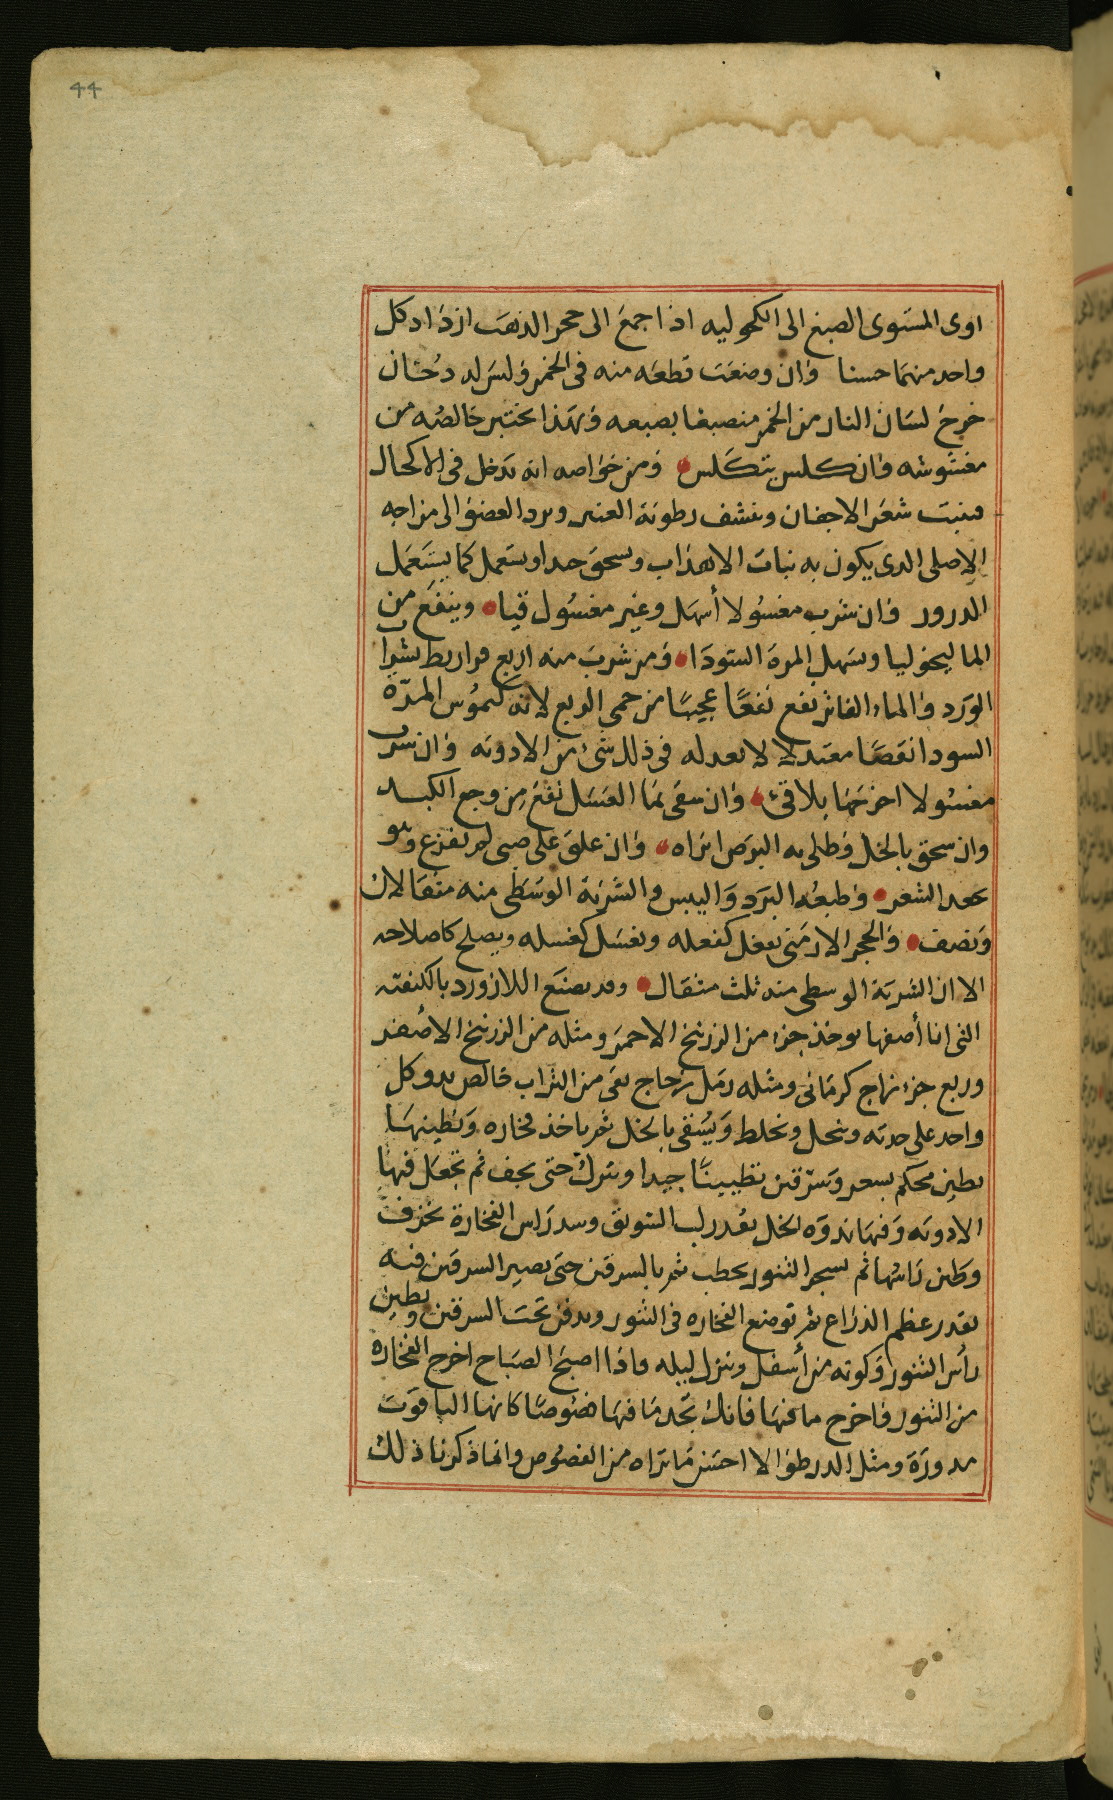 44
اوى المستوى الصبغ الى الكحوليه اذا جمع الى حجر الذهب ازداد كل
واحد منهما حسنا وان وضعت قطعه منه فى الجمر وليس له دخان
خرج لسان النار من الجمر منصبغا بصبغه وبهذا يختبر خالصه من
مغشوشه وان كلس يتكلس ومن خواصه انه يدخل فى الاكحال
فينبت شعر الاجفان وينشف رطوبة العين ويرد العضو الى مزاجه
الاصلى الذى يكون به نبات الاهداب ويسحق جدا ويستعمل كما يستعمل
الدرور وان شرب مغسولا أسهل وغير مغسول قيا وينفع من
الماليخوليا ويسهل المرة السودا ومن شرب منه اربع قراريط بشراب
الورد والماء الفاتر نفع نفعا عجيبا من حمى الربع لانه كيموس المرة
السودا نقصا معتدلا لا يعدله فى ذلك شىء من الادوية وان شرب
مغسولا اخرجها بلا قىء وان سقى بما العسل نفع من وجع الكبد
وان سحق بالخل وطلى به البرص ابراه وان علق على صبى لم يفزع وهو
يجعد الشعر وطبعه البرد واليبس والشربة الوسطى منه مثقالان
ونصف والحجر الارمنى يفعل كفعله ويغسل كغسله ويصلح كاصلاحه
الا ان الشربة الوسطى منه ثلث مثقال وقد يصنع اللازورد بالكيفية
التى انا أصفها يوخذ جزء من الزرنيخ الاحمر ومثله من الزرنيخ الاصفر
وربع جزء زاج كرمانى ومثله رمل زجاج نقى من التراب خالص يدق كل
واحد على حدته وينخل ويخلط ويسقى بالخل ثم ياخذ فخاره ويطينها
بطين محكم بسعر وسرقين تطيينا جيدا ويترك حتى يجف ثم تجعل فيها
الادوية وفيها ندوة الخل بقدر لب السويق وسد راس الفخارة بخزف
وطين راسها ثم يسجر التنور بحطب ثم بالسرقين حتى يصير السرقين فيه
بقدر عظم الذراع ثم توضع الفخاره فى التنور ويدفن تحت السرقين ويطين
رأس التنور وكوته من أسفل ويترك ليله فاذا اصبح الصباح اخرج الفخارة
من التنور واخرج ما فيها فانك تجد ما فيها فصوصا كانها الياقوت
مدورة ومثل الدر طوالا احسن ما تراه من الفصوص وانما ذكرنا ذلك